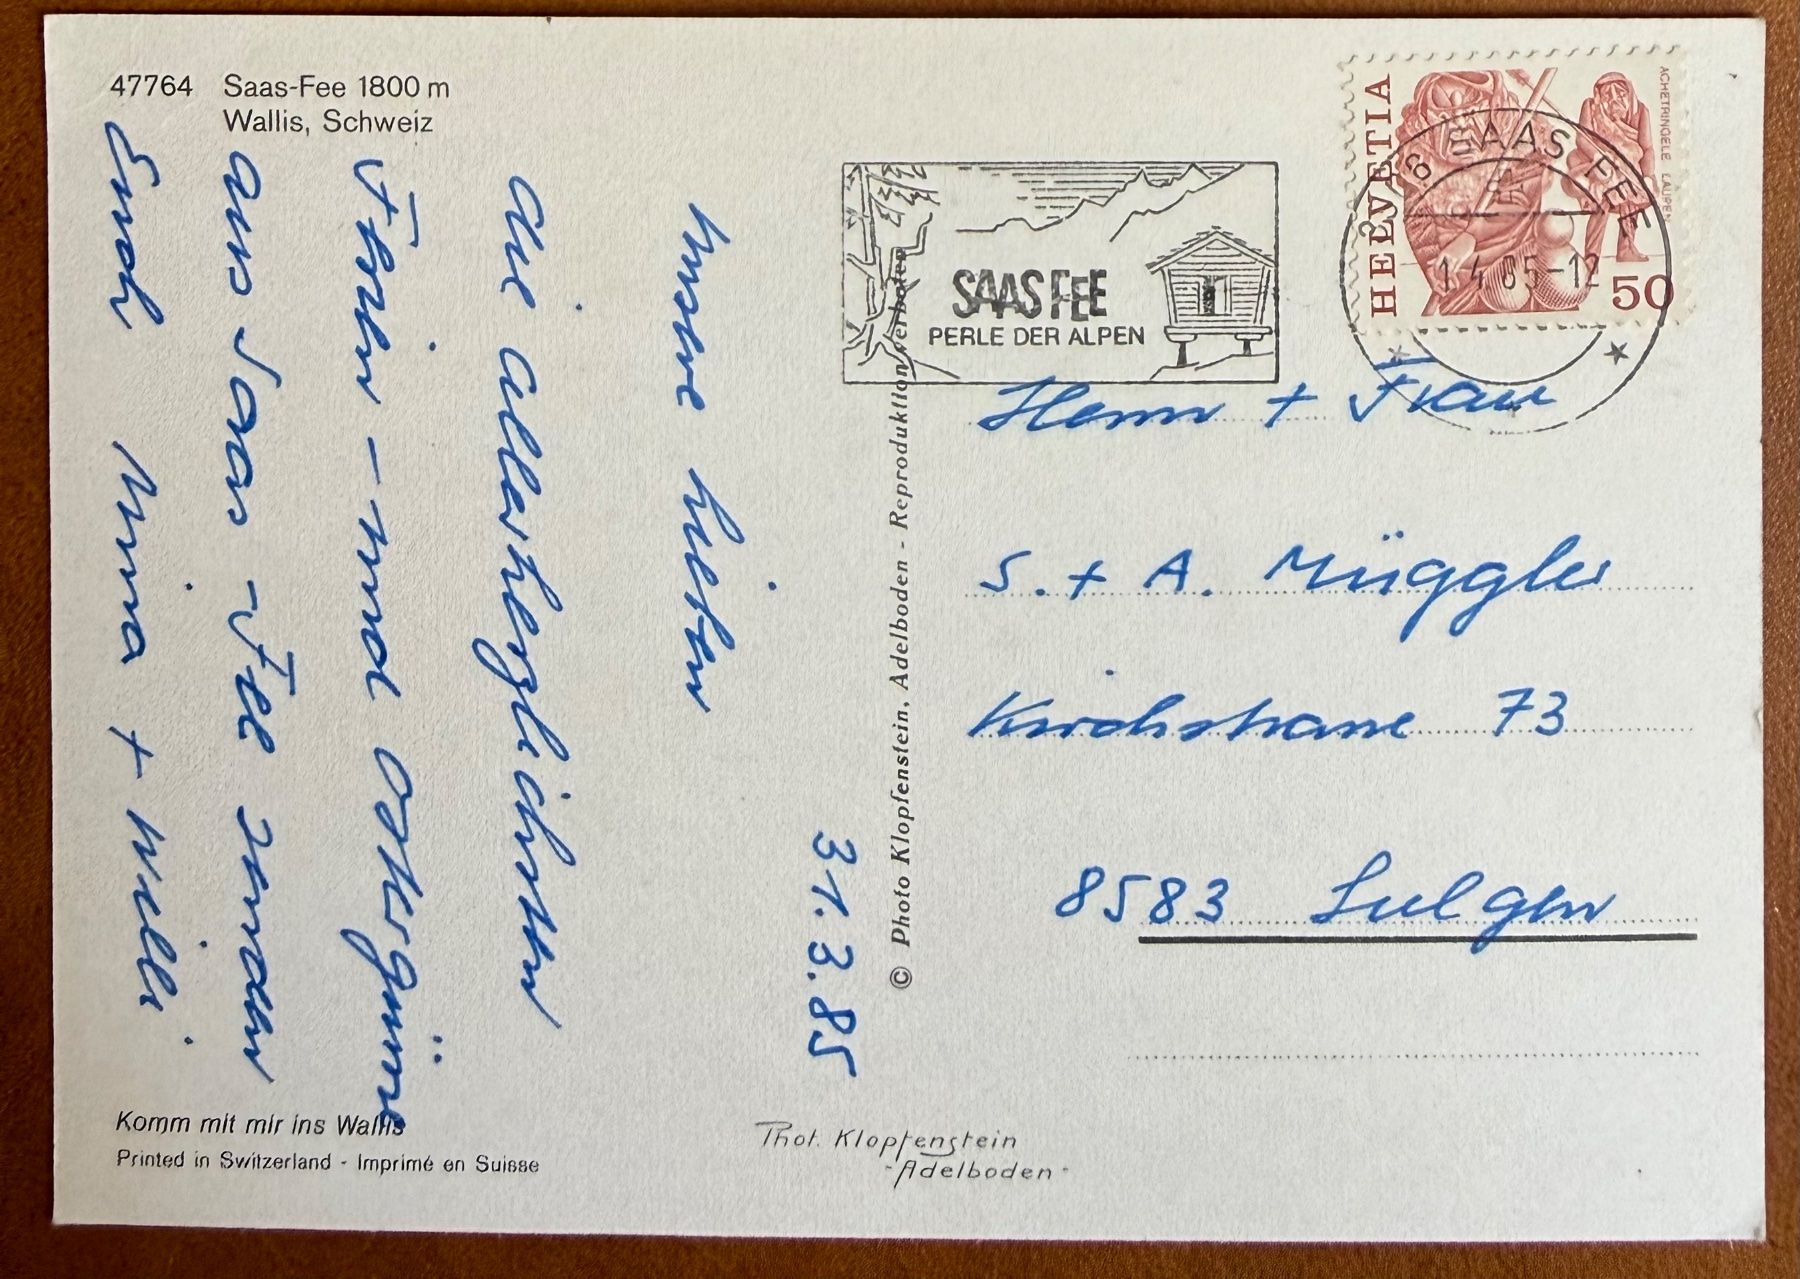 47764 Saas-Fee 1800 m
Wallis, Schweiz
31.3.85
Unsere lieben
die allerherzlichsten
Ferien- und Ostergrüsse
aus Saas-Fee senden
Euch Mina + Willi
Komm mit mir ins Wallis
Printed in Switzerland - Imprimé en Suisse
© Photo Klopfenstein, Adelboden - Reproduktion verboten
Phot. Klopfenstein
-Adelboden-
SAAS FEE
PERLE DER ALPEN
HELVETIA
ACHETRINGELE LAUPEN
50
3906 SAAS FEE
1.4.85-12
Herrn + Frau
S. + A. Müggler
Kirchstrasse 73
8583 Sulgen